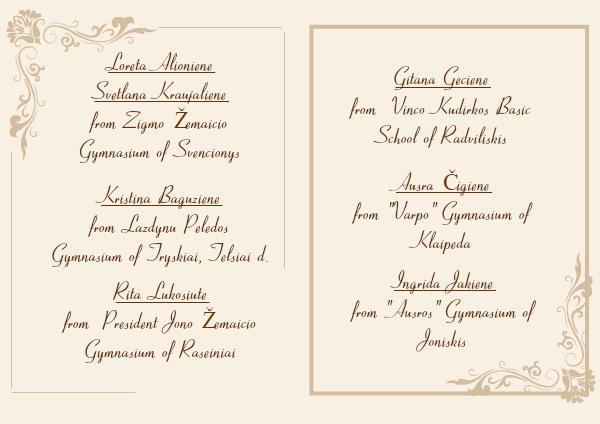 Loreta Alioniene
Svetlana Kraujaliene
from Zigmo Žemaicio
Gymnasium of Svencionys
Kristina Baguziene
from Lazdynu Peledos
Gymnasium of Tryskiai, Telsiai d.
Rita Lukosiute
from President Jono Žemaicio
Gymnasium of Raseiniai
Gitana Geciene
from Vinco Kudirkos Basic
School of Radviliskis
Ausra Čigiene
from "Varpo" Gymnasium of
Klaipeda
Ingrida Jakiene
from "Ausros" Gymnasium of
Joniskis